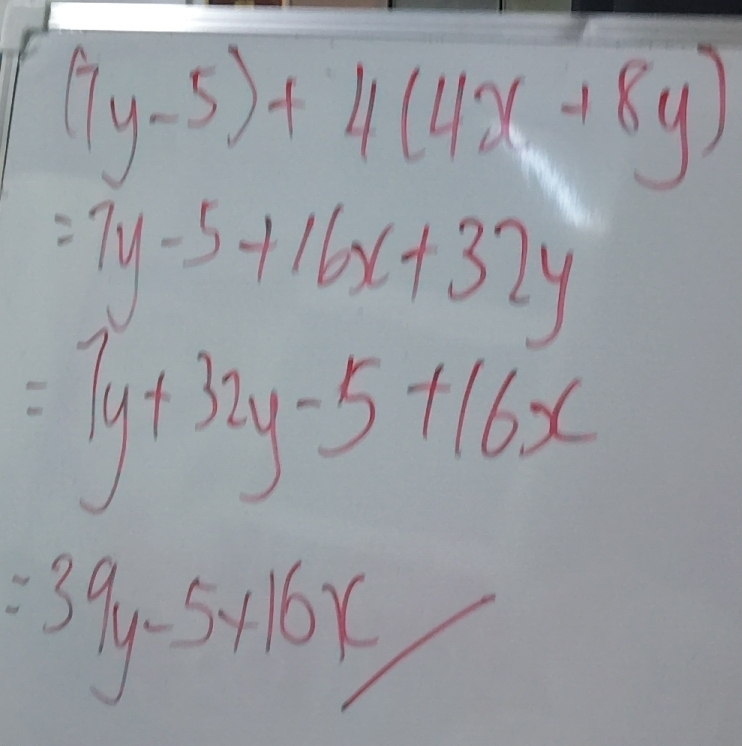 (7y-5)+ 4(4x +8y)
=7y-5+16x+32y
= 7y+32y-5+16x
=39y-5+16x